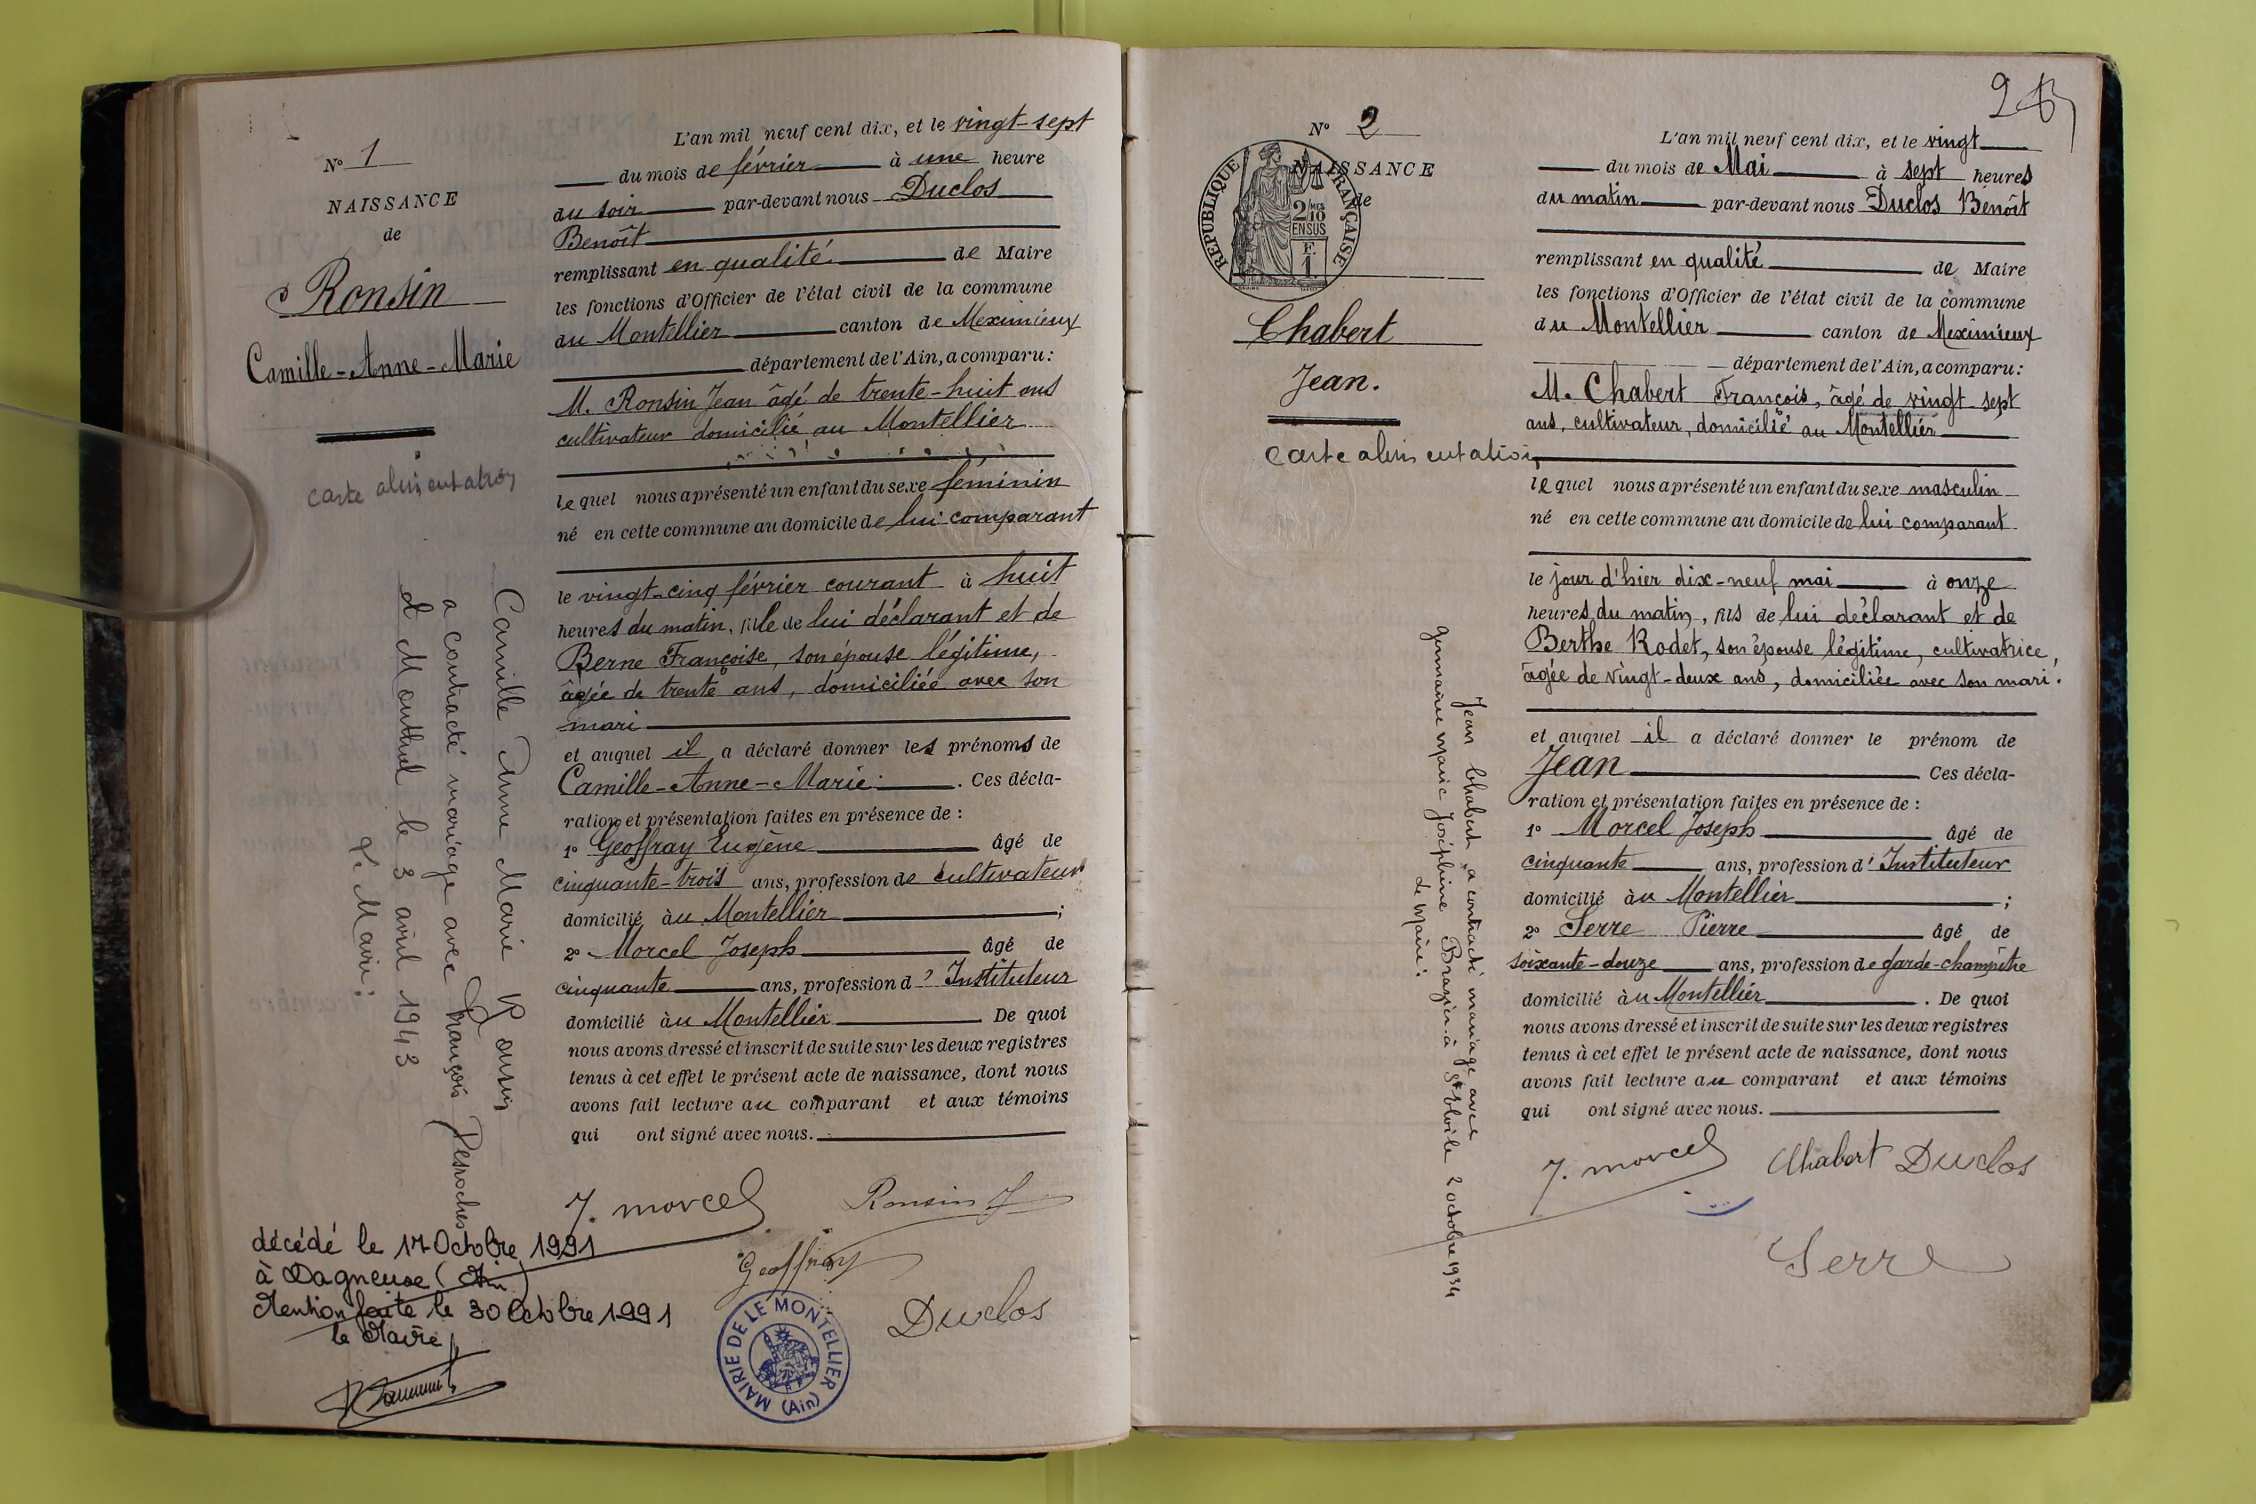 N° 1
NAISSANCE
de
Ronsin
Camille-Anne-Marie
carte alimentation
Camille Anne Marie Ronsin
a contracté mariage avec François Desroches
à Monthul le 3 avril 1943
Le Maire :
décédé le 17 Octobre 1991
à Dagneux (Ain)
Mention faite le 30 Octobre 1991
le Maire
L'an mil neuf cent dix, et le vingt-sept
du mois de février à une heure
du soir par-devant nous Duclos
Benoît
remplissant en qualité de Maire
les fonctions d'Officier de l'état civil de la commune
du Montellier canton de Meximieux
département de l'Ain, a comparu :
M. Ronsin Jean âgé de trente-huit ans
cultivateur domicilié au Montellier
lequel nous a présenté un enfant du sexe féminin
né en cette commune au domicile de lui comparant
le vingt-cinq février courant à huit
heures du matin, fille de lui déclarant et de
Berne Françoise, son épouse légitime,
âgée de trente ans, domiciliée avec son
mari
et auquel il a déclaré donner les prénoms de
Camille-Anne-Marie. Ces décla-
ration et présentation faites en présence de :
1° Geoffray Eugène âgé de
cinquante-trois ans, profession de cultivateur
domicilié au Montellier ;
2° Morcel Joseph âgé de
cinquante ans, profession d'Instituteur
domicilié au Montellier De quoi
nous avons dressé et inscrit de suite sur les deux registres
tenus à cet effet le présent acte de naissance, dont nous
avons fait lecture au comparant et aux témoins
qui ont signé avec nous.
J. Morcel Ronsin J
Geoffray
Duclos
MAIRIE DE LE MONTELLIER (Ain)
2
N° 2
NAISSANCE
de
REPUBLIQUE FRANÇAISE
2/10 MES
EN SUS
F.
1.
Chabert
Jean.
carte alimentation
Jean Chabert, a contracté mariage avec
Germaine Marie Joséphine Brazier à Ste Eloile 2 octobre 1934
Le Maire :
L'an mil neuf cent dix, et le vingt
du mois de Mai à sept heures
du matin par-devant nous Duclos Benoît
remplissant en qualité de Maire
les fonctions d'Officier de l'état civil de la commune
du Montellier canton de Meximieux
département de l'Ain, a comparu :
M. Chabert François, âgé de vingt-sept
ans, cultivateur, domicilié au Montellier
lequel nous a présenté un enfant du sexe masculin
né en cette commune au domicile de lui comparant
le jour d'hier dix-neuf mai à onze
heures du matin, fils de lui déclarant et de
Berthe Rodet, son épouse légitime, cultivatrice,
âgée de vingt-deux ans, domiciliée avec son mari.
et auquel il a déclaré donner le prénom de
Jean Ces décla-
ration et présentation faites en présence de :
1° Morcel Joseph âgé de
cinquante ans, profession d'Instituteur
domicilié au Montellier ;
2° Serre Pierre âgé de
soixante-douze ans, profession de garde-champêtre
domicilié au Montellier. De quoi
nous avons dressé et inscrit de suite sur les deux registres
tenus à cet effet le présent acte de naissance, dont nous
avons fait lecture au comparant et aux témoins
qui ont signé avec nous.
J. Morcel Chabert Duclos
Serre